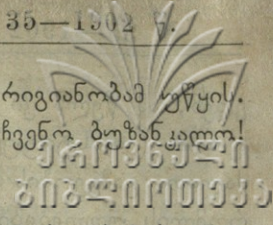 35—1902 წ.
რიგიანობამ უწყის.
ჩვენო ბუზანკალო!
ეროვნული
ბიბლიოთეკა